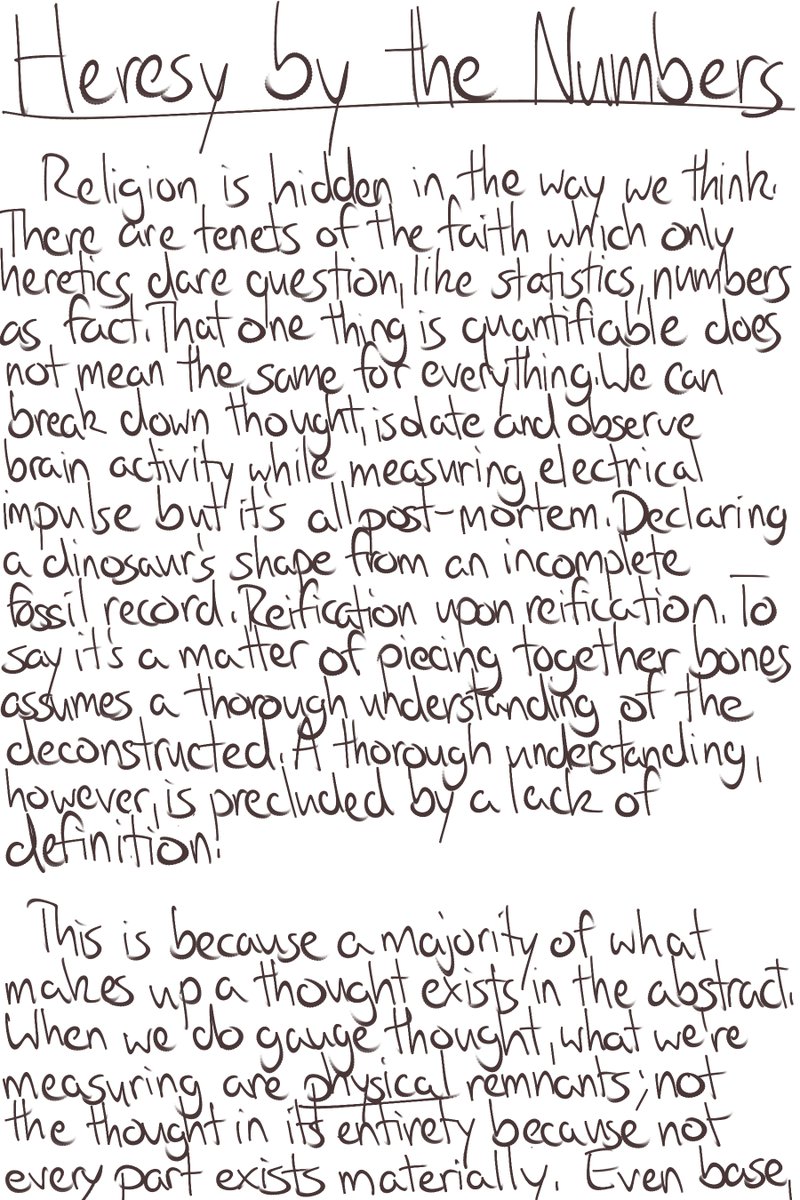 Heresy by the Numbers
Religion is hidden in the way we think.
There are tenets of the faith which only
heretics dare question, like statistics, numbers
as fact. That one thing is quantifiable does
not mean the same for everything. We can
break down thought, isolate and observe
brain activity while measuring electrical
impulse but it's all post-mortem. Declaring
a dinosaur's shape from an incomplete
fossil record. Reification upon reification. To
say it's a matter of piecing together bones
assumes a thorough understanding of the
deconstructed. A thorough understanding,
however, is precluded by a lack of
definition.
This is because a majority of what
makes up a thought exists in the abstract.
When we do gauge thought, what we're
measuring are physical remnants; not
the thought in its entirety because not
every part exists materially. Even base,